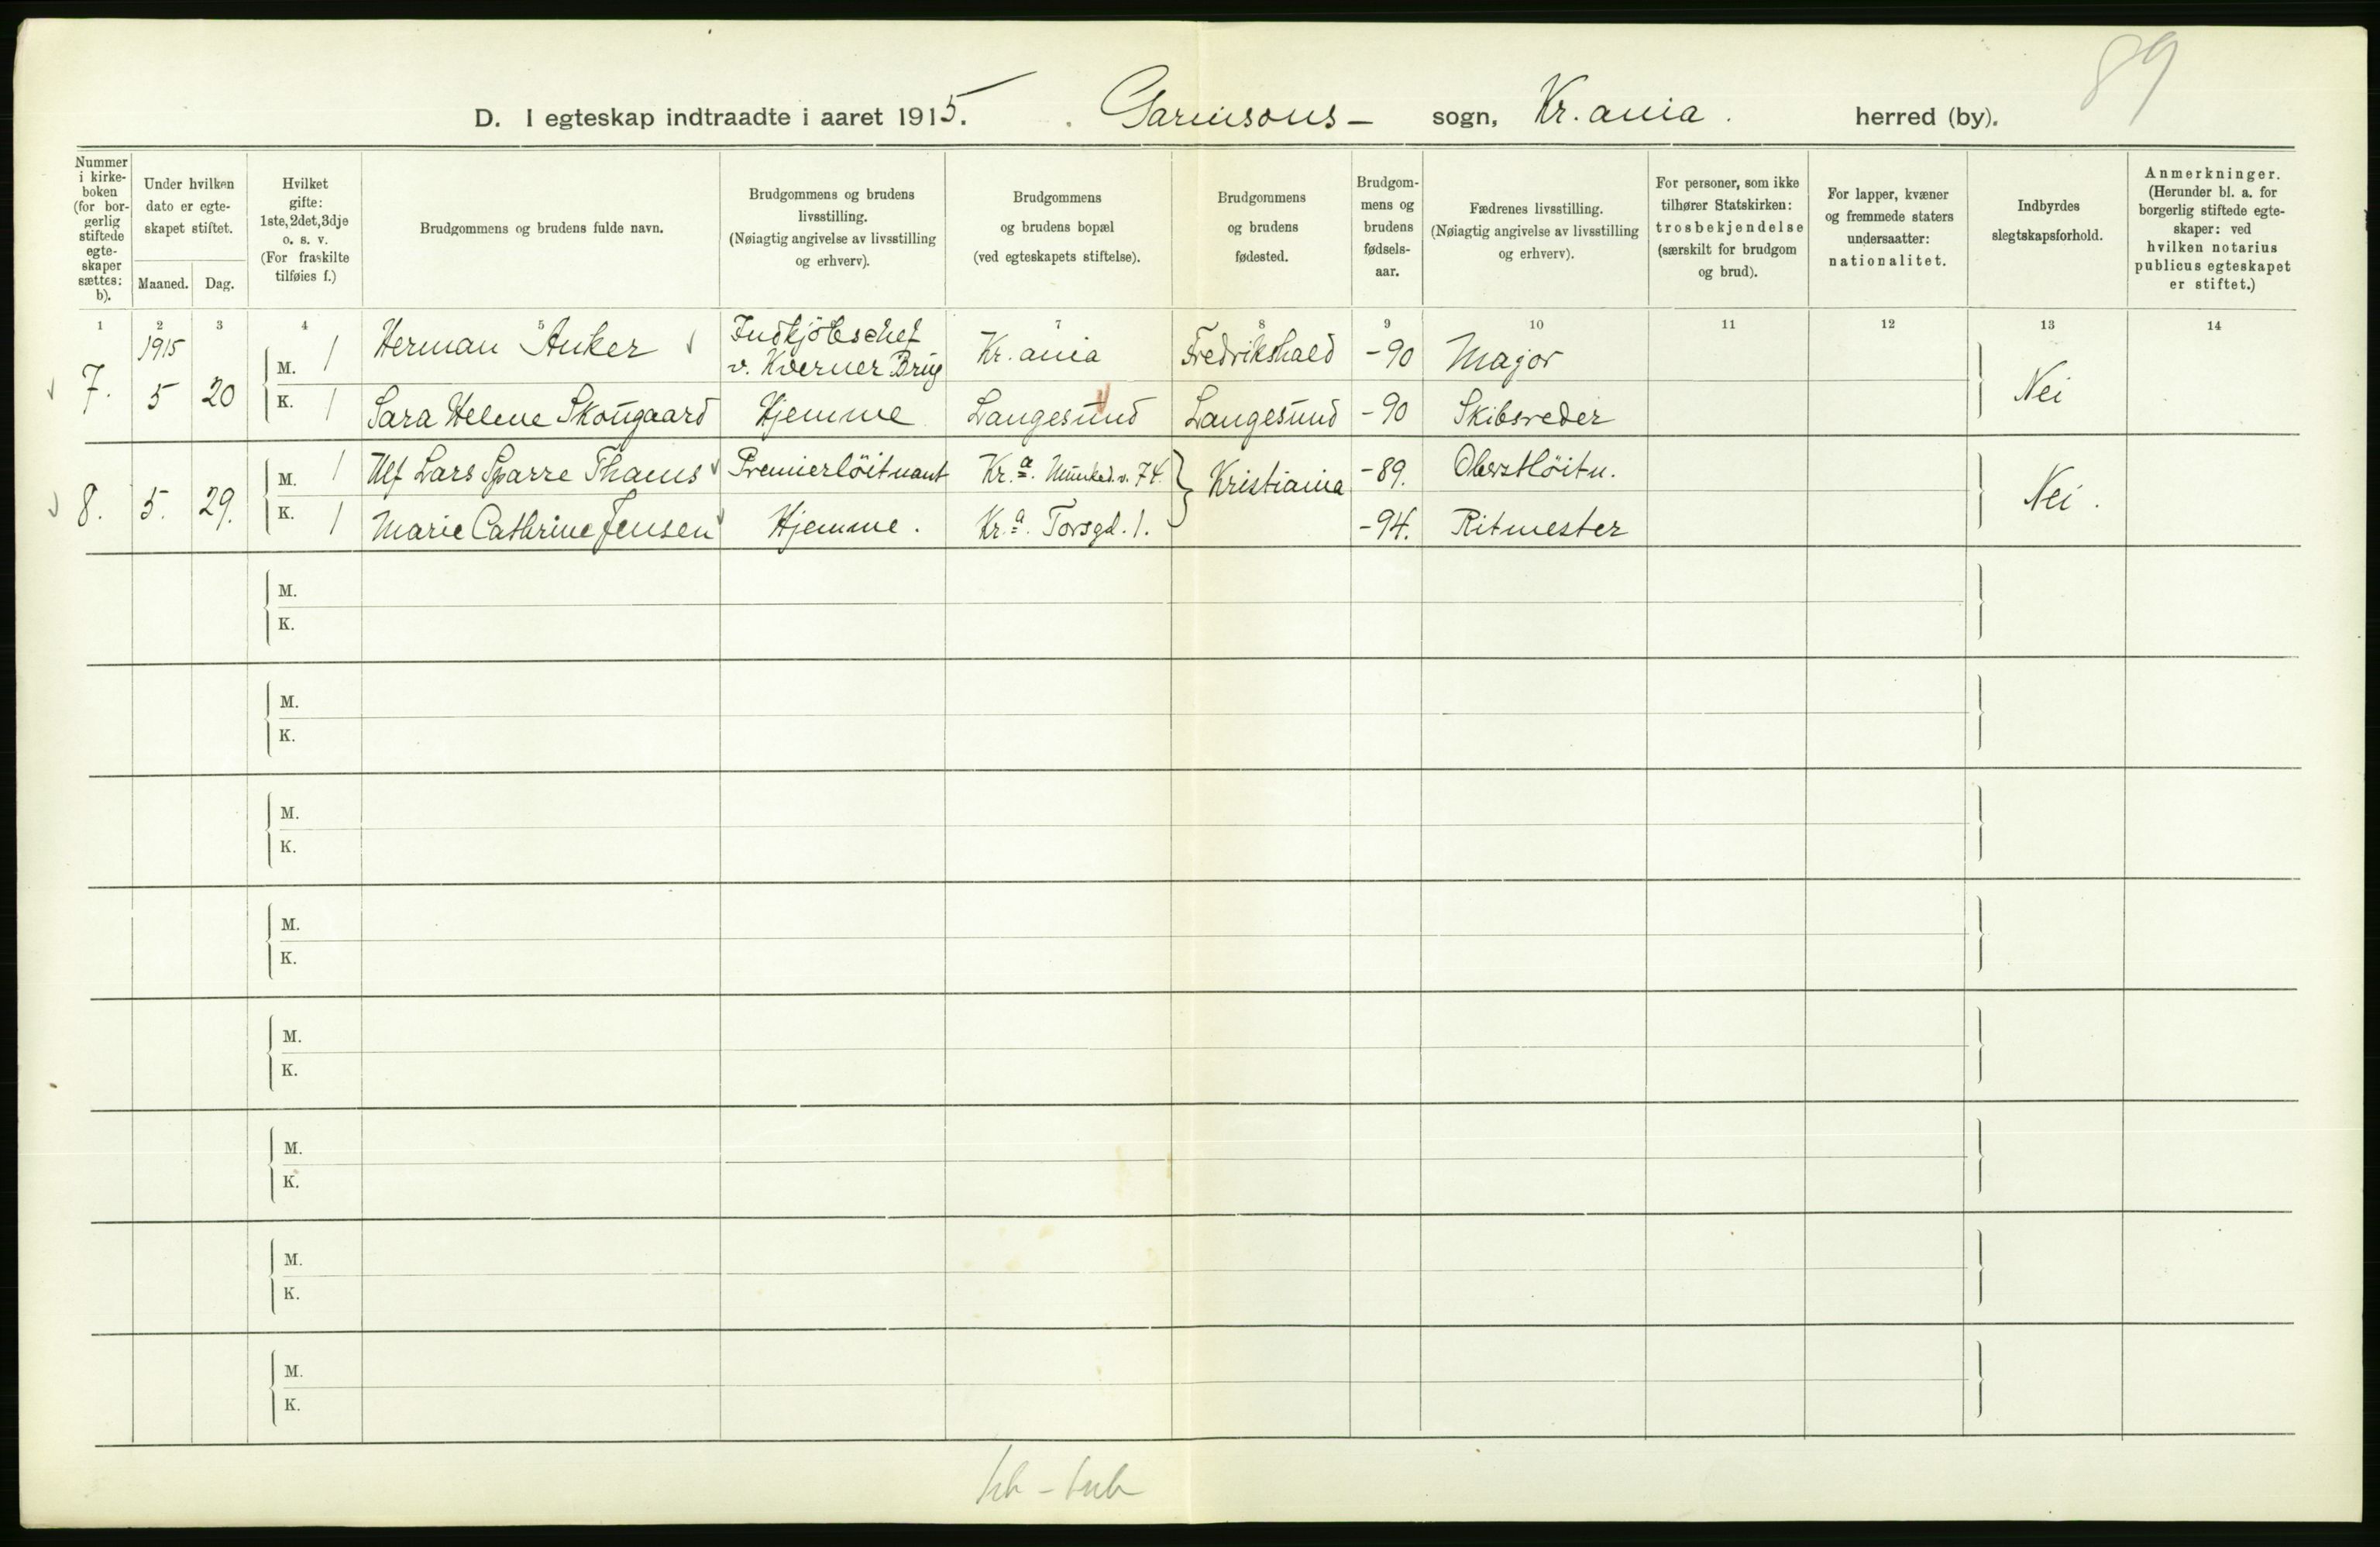 89
D. I egteskap indtraadte i aaret 1915. Garnisons- sogn, Kr.ania. herred (by).
Nummer i kirke-boken (for bor-gerlig stiftede egte-skaper sættes: b).
Under hvilken dato er egte-skapet stiftet.
Maaned. Dag.
Hvilket gifte: 1ste, 2det, 3dje o. s. v. (For fraskilte tilføies f.)
Brudgommens og brudens fulde navn.
Brudgommens og brudens livsstilling. (Nøiagtig angivelse av livsstilling og erhverv).
Brudgommens og brudens bopæl (ved egteskapets stiftelse).
Brudgommens og brudens fødested.
Brudgom-mens og brudens fødsels-aar.
Fædrenes livsstilling. (Nøiagtig angivelse av livsstilling og erhverv).
For personer, som ikke tilhører Statskirken: trosbekjendelse (særskilt for brudgom og brud).
For lapper, kvæner og fremmede staters undersaatter: nationalitet.
Indbyrdes slegtskapsforhold.
Anmerkninger. (Herunder bl. a. for borgerlig stiftede egte-skaper: ved hvilken notarius publicus egteskapet er stiftet.)
1 2 3 4 5 7 8 9 10 11 12 13 14
1915
7. 5 20
M. 1 Herman Anker Indkjöbschef v. Kværner Brug Kr.ania Fredrikshald -90 Major
K. 1 Sara Helene Skougaard Hjemme Langesund Langesund -90 Skibsreder
Nei
8. 5. 29.
M. 1 Ulf Lars Sparre Thams Premierlöitnant Kr.a. Munked.v. 74. Kristiania -89. Oberstlöitn.
K. 1 Marie Cathrine Jensen Hjemme. Kr.a. Torsgd. 1. -94. Ritmester
Nei.
M.
K.
M.
K.
M.
K.
M.
K.
M.
K.
M.
K.
M.
K.
M.
K.